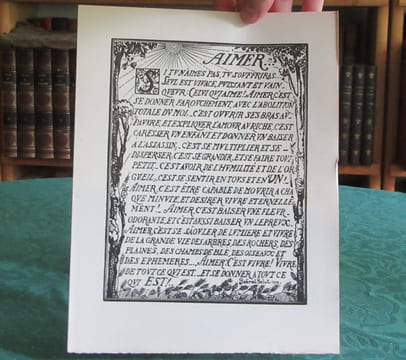 AIMER
SI TU N'AIMES PAS, TU SOUFFRIRAS.
SEUL EST VIVACE, PUISSANT ET VAIN-
QUEUR, CELUI QUI AIME! AIMER, C'EST
SE DONNER, FAROUCHEMENT, AVEC L'ABOLITION
TOTALE DU MOI... C'EST OUVRIR SES BRAS AU
PAUVRE, ET EXPLIQUER L'AMOUR AU RICHE, C'EST
CARESSER UN ENFANT ET DONNER UN BAISER
A L'ASSASSIN... C'EST SE MULTIPLIER ET SE
DISPERSER, C'EST SE GRANDIR, ET SE FAIRE TOUT
PETIT... C'EST AVOIR DE L'HUMILITÉ ET DE L'OR
GUEIL... C'EST SE SENTIR EN TOUS ET EN UN.
AIMER, C'EST ÊTRE CAPABLE DE MOURIR A CHA
QUE MINUTE, ET DESIRER VIVRE ETERNELLE
MENT! AIMER, C'EST BAISER UNE FLEUR
ODORANTE, ET C'EST AUSSI BAISER UN LEPREUX.
AIMER, C'EST SE SAOULER DE LUMIERE ET VIVRE
DE LA GRANDE VIE DES ARBRES, DES ROCHERS, DES
PLAINES, DES CHAMPS DE BLÉ, DES OISEAUX ET
DES EPHEMERES... AIMER, C'EST VIVRE! VIVRE
DE TOUT CE QUI EST... ET SE DONNER A TOUT CE
QUI EST!
Gabriel Belot